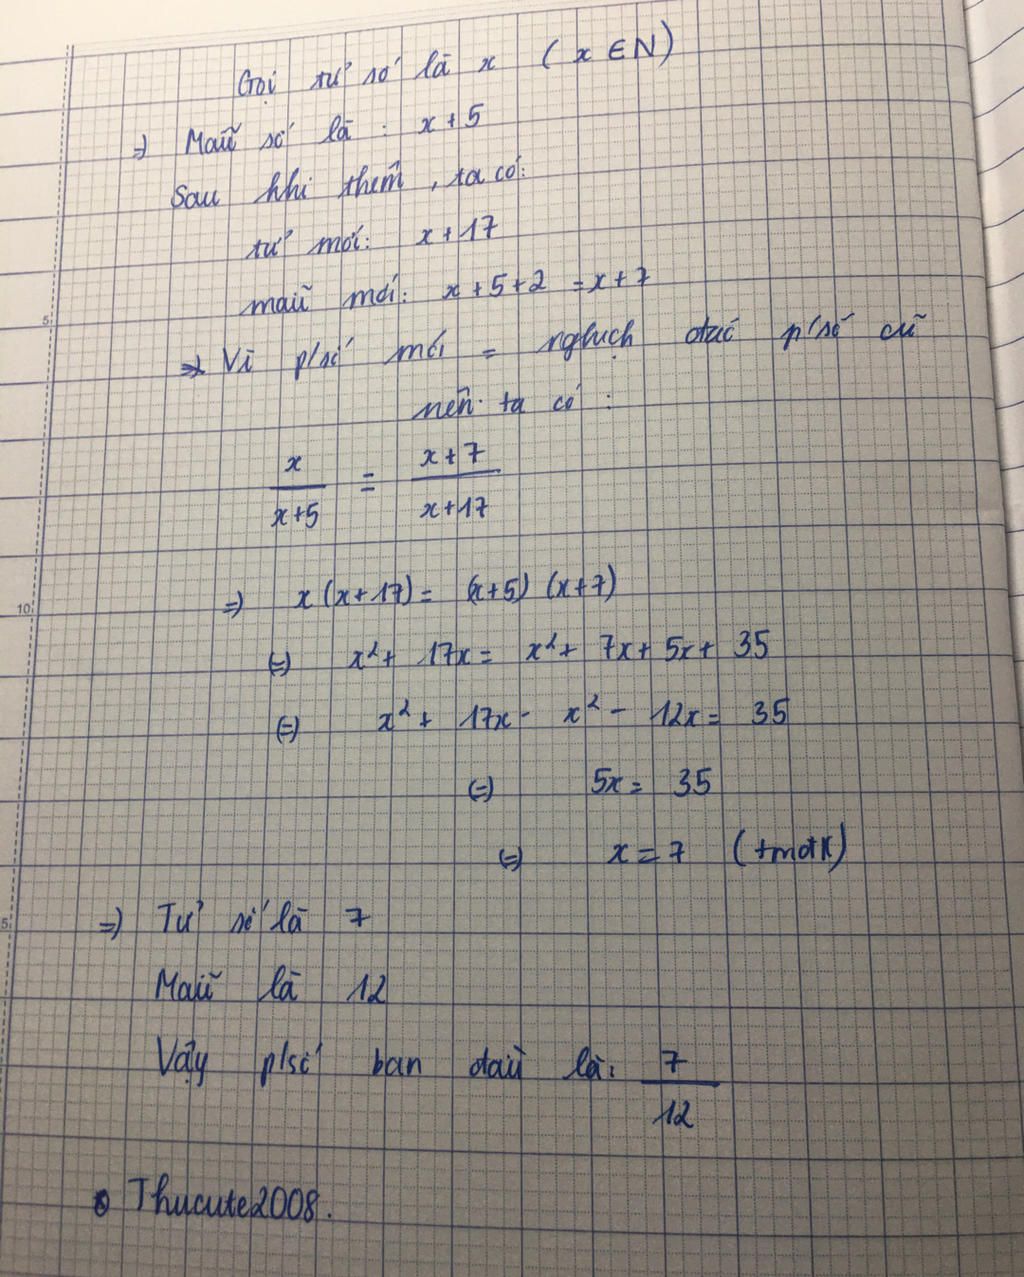 Gọi tử số là x (x ∈ N)
=> Mẫu số là : x + 5
Sau khi thêm, ta có:
tử mới: x + 17
mẫu mới: x + 5 + 2 = x + 7
=> Vì p/số mới = nghịch đảo p/số cũ
nên ta có :
x/(x+5) = (x+7)/(x+17)
=> x(x+17) = (x+5)(x+7)
(=) x² + 17x = x² + 7x + 5x + 35
(=) x² + 17x - x² - 12x = 35
(=) 5x = 35
(=) x = 7 (tmđk)
=> Tử số là 7
Mẫu là 12
Vậy p/số ban đầu là: 7/12
Thucute2008.
5
10
5